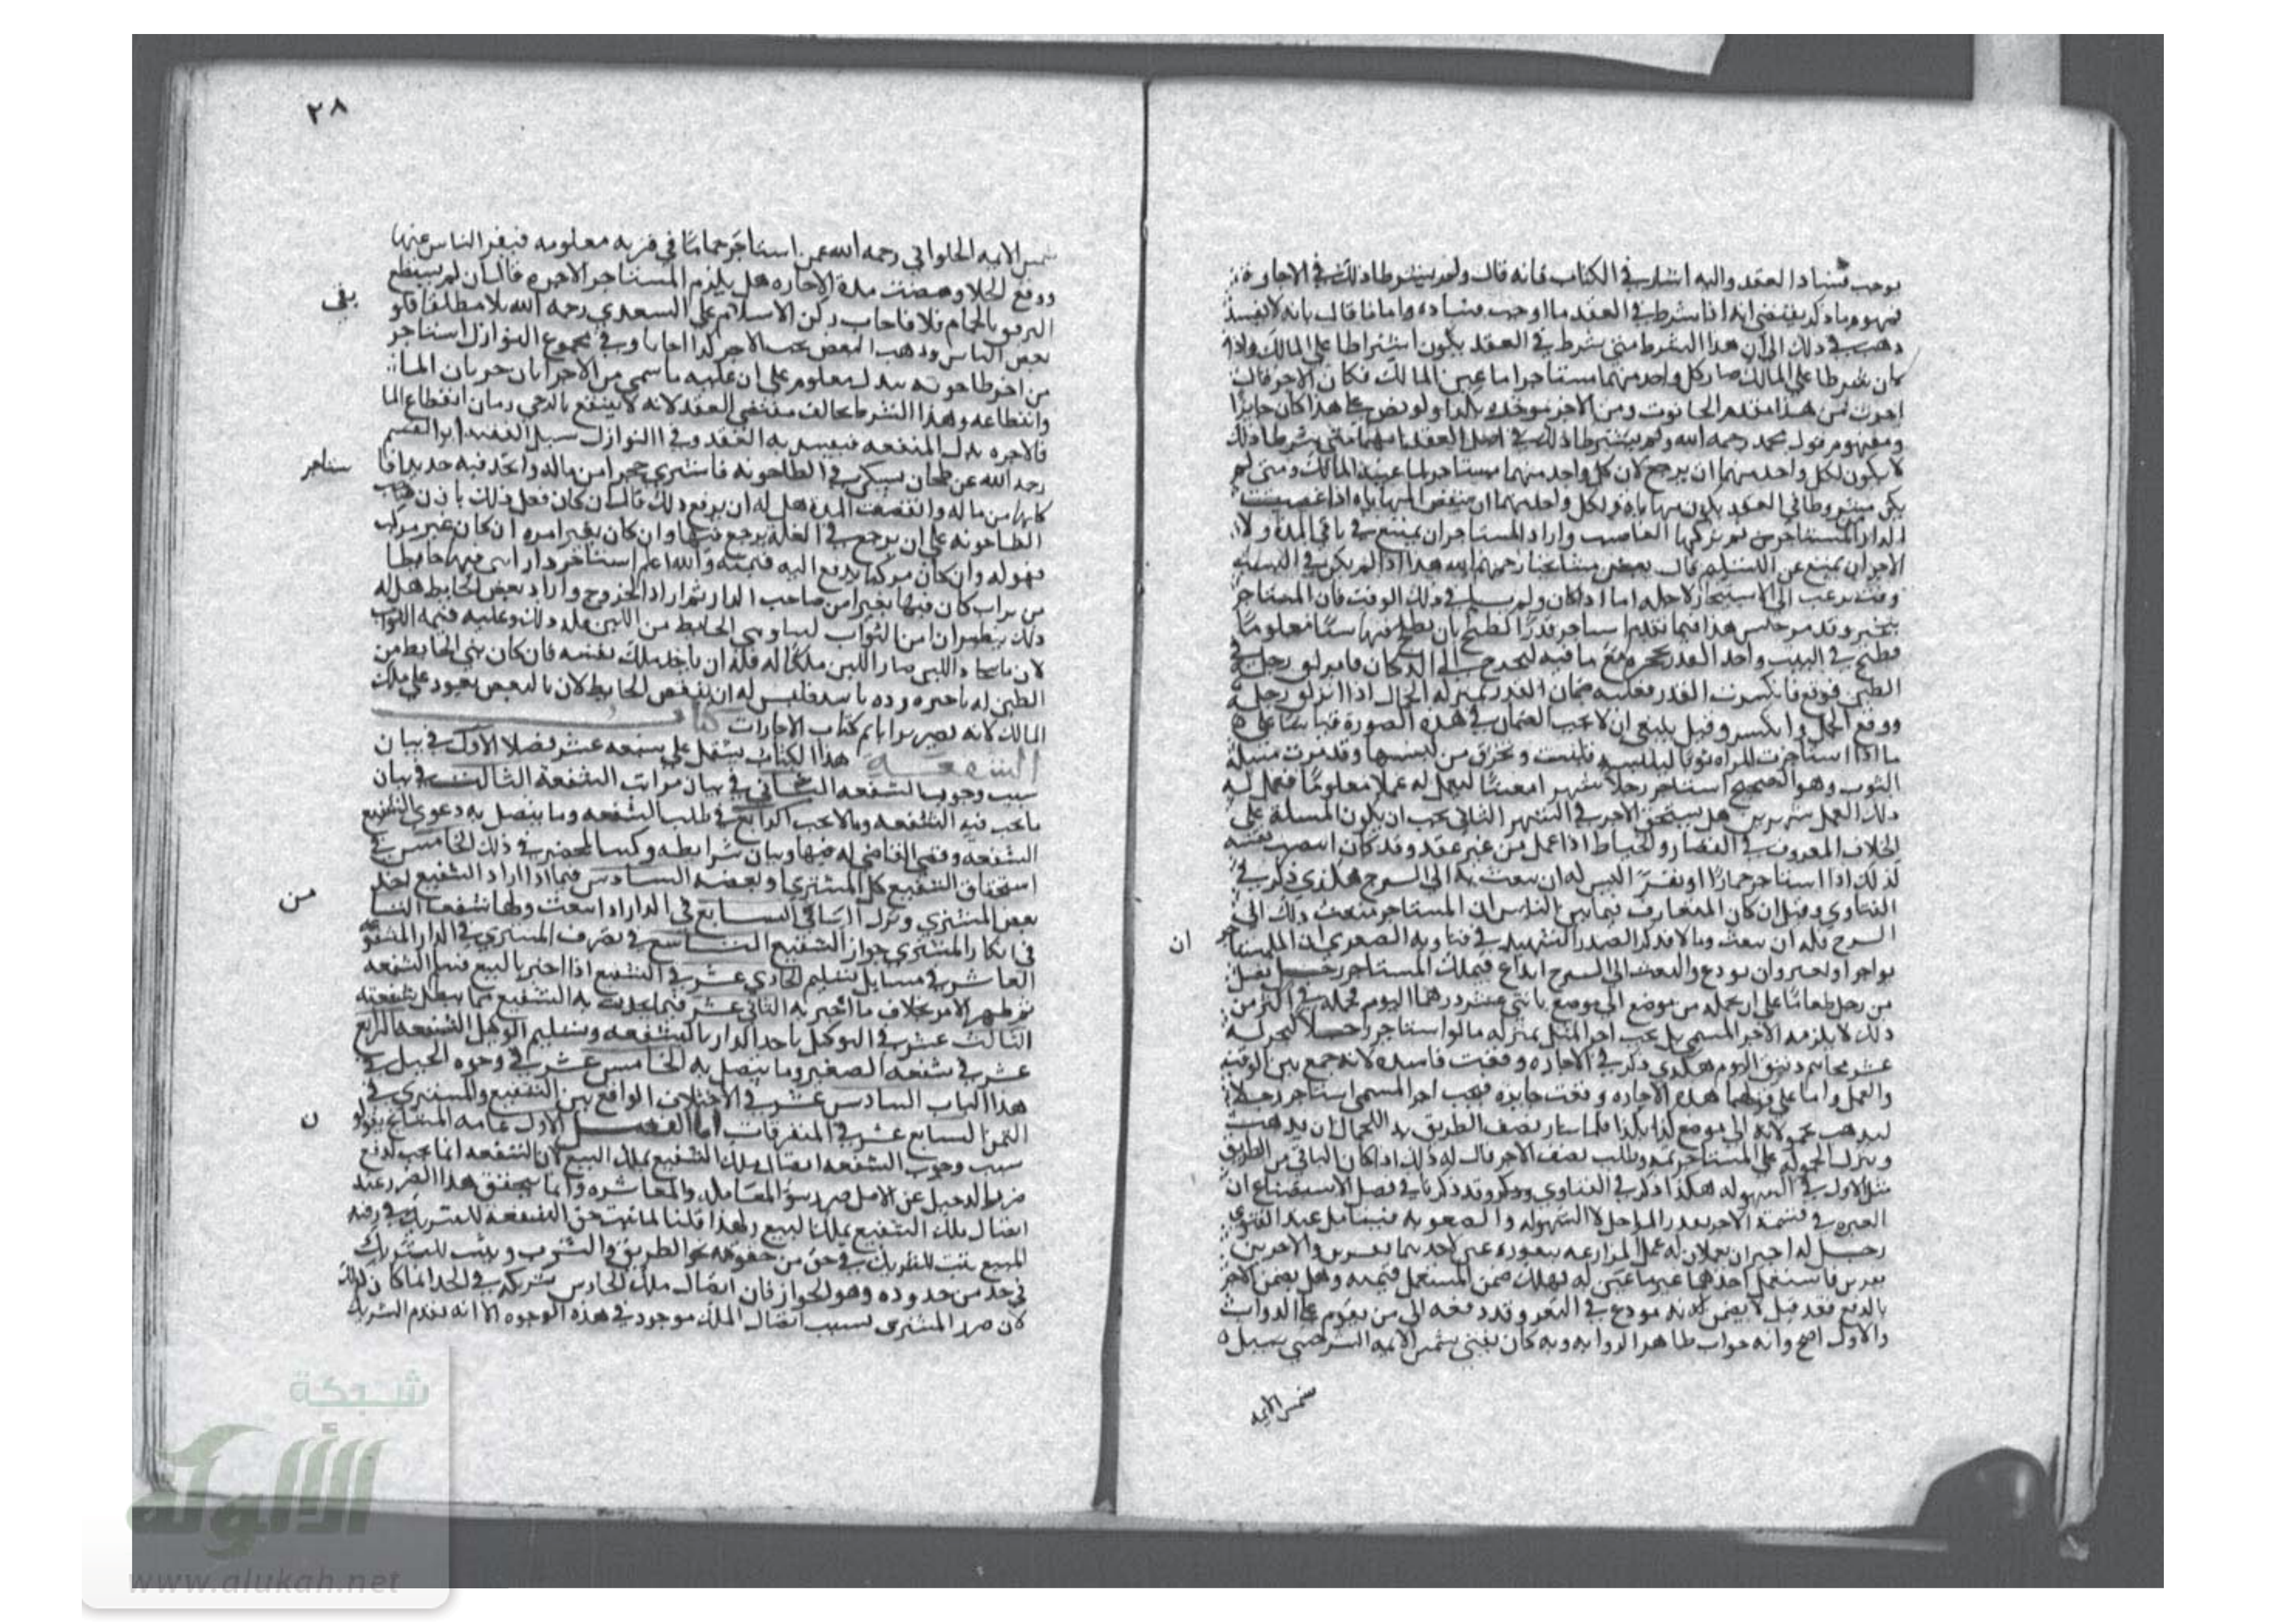 يوجب فساد العقد واليه اشار في الكتاب فانه قال ولم يشترطا ذلك في الاجارة
فمفهوم ما ذكر يقتضي انه اذا شرط في العقد ما اوجب فساده واما اذا قال بانه لا يفسد
ذهب في ذلك الى ان هذا الشرط متى شرط في العقد يكون اشتراطا على المالك واذا
كان شرطا على المالك صار كل واحد منهما مستاجرا ما عين المالك فكان الاجر قال
اجرت من هذا مقدم الحانوت ومن الاخر موخره ولو نص على هذا كان جايزا
ومفهوم قول محمد رحمه الله ولم يشترطا ذلك في اصل العقد متى شرطا ذلك
لا يكون لكل واحد منهما ان يرجع لان كل واحد منهما مستاجر لما عينه المالك ومتى لم
يكن مشروطا في العقد يكون مهاياة ولكل واحد منهما ان ينقض المهاياة اذا غصبت
الدار المستاجرة ثم تركها الغاصب واراد المستاجر ان يمتنع في باقي المدة ولا
الاجر ان يمتنع عن التسليم قال بعض مشايخنا رحمهم الله هذا اذا لم يكن في السنة
وقت يرغب الى الاستيجار لاجله اما اذا كان ولم يسلم في ذلك الوقت فان المستاجر
يتخير وقد مر جنس هذا فيما تقدم استاجر قدرا لطبخ بان يطبخ فيها شيا معلوما
فطبخ في البيت واخذ القدر مع ما فيه ليخرج الى الدكان فانزلق رجله في
الطين فوقع فانكسرت القدر فعليه ضمان القدر بمنزلة الحمال اذا انزلق رجله
ووقع الحمل وانكسر وقيل ينبغي ان لا يجب الضمان في هذه الصورة قياسا على
ما اذا استاجرت المراة ثوبا لتلبسه فلبست وتخرق من لبسها وقد مرت مسئلة
الثوب وهو الصحيح استاجر رجلا شهرا معينا ليعمل له عملا معلوما فعمل له
ذلك العمل شهرين هل يستحق الاجر في الشهر الثاني يجب ان يكون المسلة على
الخلاف المعروف في القصار والخياط اذا عمل من غير عقد وقد كان نفسه
لذلك اذا استاجر حمارا او بقرا اليس له ان يبعث به الى السرح هكذا ذكر في
الفتاوى وقيل ان كان المتعارف فيما بين الناس ان المستاجر يبعث ذلك الى
السرح فله ان يبعث وما لا فلا ذكر الصدر الشهيد في فتاويه الصغرى ان للمستاجر
يواجر او يعير وان يودع والبعث الى السرح ايداع فيملك المستاجر رجل
من رجل طعاما على ان يحمله من موضع الى موضع باثني عشر درهما اليوم فحمله في اكثر من
ذلك لا يلزمه الاجر المسمى بل يجب اجر المثل بمنزلة ما لو استاجر رجلا ليخبز له
عشر مخاتيم دقيق اليوم هكذا ذكر في الاجارة وقعت فاسدة لانه جمع بين الوقت
والعمل واما على قولهما هذه الاجارة وقعت جايزة فيجب اجر المسمى استاجر رجلا
ليذهب بحمولة الى موضع كذا بكذا فلما سار نصف الطريق بدا للحمال ان يذهب
ويترك الحمولة على المستاجر ثمه وطلب نصف الاجر قال له ذلك اذا كان الباقي من الطريق
مثل الاول في السهولة هكذا ذكر في الفتاوى وقد ذكرنا في فصل الاستصناع ان
العبرة في قسمة الاجر بعدد المراحل لا السهولة والصعوبة فيتامل عند الفتوى
رجل له اجيران يعملان له عمل المزارعة ببقوره عين لاحدهما بقرين والاخر بقرين
بقرين فاستعمل احدهما غير ما عين له فهلك ضمن المستعمل قيمته وهل يضمن الاخر
بالدفع فقد قيل لا يضمن لانه مودع في البقر وقد دفعه الى من يقوم على الدواب
والاول اصح وانه جواب ظاهر الرواية وبه كان يفتي شمس الايمة السرخسي سيل
ان
شمس الايمه
٢٨
شمس الايمه الحلواني رحمه الله عمن استاجر حماما في قرية معلومه فنفر الناس عنها
ووقع الجلا ومضت مدة الاجاره هل يلزم المستاجر الاجره قال ان لم يستطع
الترفق بالحمام فلا واجاب ركن الاسلام علي السعدي رحمه الله بلا مطلقا فلو
بعض الناس وذهب البعض يجب الاجر كذا اجابا وفي مجموع النوازل استاجر
من اخر طاحونه ببدل معلوم على ان عليه ما سمي من الاجر ايان جريان الماء
وانقطاعه وهذا الشرط يخالف مقتضى العقد لانه لا ينتفع بالرحى زمان انقطاع الما
فالاجره بدل المنفعه فيفسد به العقد وفي النوازل سيل الفقيه ابو القسم
رحمه الله عن طحان في الطاحونه فاشترى حجرا من ماله واتخذ فيه حديدا
كلها من ماله وانقضت المدة هل له ان يرفع ذلك قال ان كان فعل ذلك باذن صاحب
الطاحونه على ان يرجع في الغلة يرجع فيها وان كان بغير امره ان كان غير مركب
فهو له وان كان مركبا يدفع اليه قيمته والله اعلم استاجر دارا بنى فيها حايطا
من تراب كان فيها بغير امر صاحب الدار ثم اراد الخروج واراد نقض الحايط هل له
ذلك ينظر ان اتخذ من التراب لبنا وبنى الحايط من اللبن فله ذلك وعليه قيمه التراب
لان ما اتخذ من اللبن صار اللبن ملكا له فله ان ياخذ ملك نفسه فان كان بنى الحايط من
الطين فليس له ان ينقض الحايط لان بالنقض يعود على ملك
المالك لانه يصير ترابا تم كتاب الاجارات كتاب
الشفعه هذا الكتاب يشتمل على سبعة عشر فصلا الاول في بيان
سبب وجوب الشفعه الثاني في بيان مراتب الشفعة الثالث في بيان
ما يجب فيه الشفعه وما لا يجب الرابع في طلب الشفعه وما يتصل به دعوى الشفيع
الشفعه وقضى القاضي له فيها وبيان شرايطه وكيفية المحضر في ذلك الخامس في
استحقاق الشفيع كل المشترى او بعضه السادس فيما اذا اراد الشفيع اخذ
بعض المشتري وترك الباقي السابع في الدار اذا بيعت ولها شفعا الثامن
في انكار المشتري جوار الشفيع التاسع في تصرف المشتري في الدار المشفوعه
العاشر في مسايل تسليم الحادي عشر في الشفيع اذا اخبر بالبيع فسلم الشفعه
ثم ظهر الامر بخلاف ما اخبر به الثاني عشر فيما يحدث به الشفيع مما يبطل شفعته
الثالث عشر في التوكيل باخذ الدار بالشفعه وتسليم الوكيل الشفعه الرابع
عشر في شفعه الصغير وما يتصل به الخامس عشر في وجوه الحيل في
هذا الباب السادس عشر في الاختلاف الواقع بين الشفيع والمشتري في
الثمن السابع عشر في المتفرقات اما الفصل الاول عامة المشايخ يقولون
سبب وجوب الشفعه اتصال ملك الشفيع بملك البيع لان الشفعه انما يجب لدفع
ضرر الدخيل عن الاصيل ضرر سو المعاملة والمعاشره وانما يتحقق هذا الضرر عند
اتصال ملك الشفيع بملك البيع ولهذا قلنا لما ثبت حق الشفعه للشريك في رقبه
المبيع يثبت للشريك في حق من حقوقه نحو الطريق والشرب ويثبت للشريك
في حد من حدوده وهو الجوار فان اتصال ملك الجار شريكه في الحد انما كان كذلك
لان ضرر المشتري بسبب اتصال الملك موجود في هذه الوجوه الا انه يقدم الشريك
بقي
ستاجر
من
ن
شبكة
الألوكة
www.alukah.net